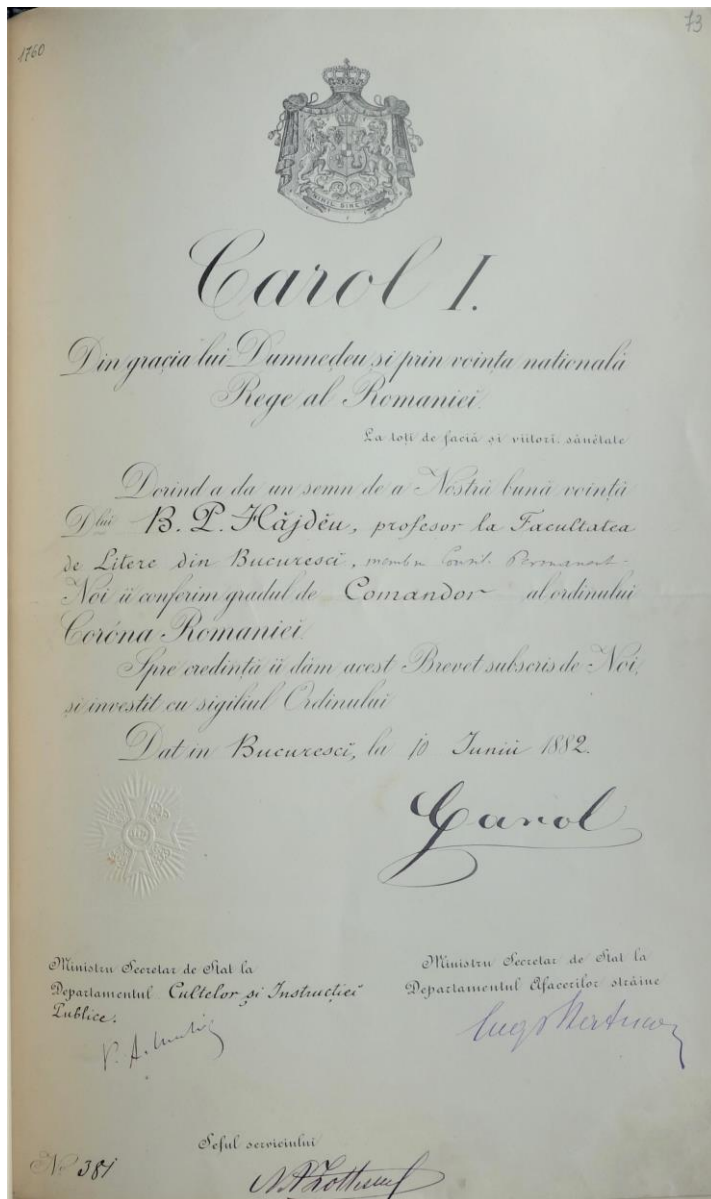 1760
73
NIHIL SINE DEO
Carol I.
Din grația lui Dumnedeu și prin voința natională
Rege al Romaniei.
La toți de faciă și viitori, sănĕtate
Dorind a da un semn de a Nostră bună voință
Dlui B. P. Hăjdĕu, profesor la Facultatea
de Litere din Bucurescĭ, membru Consil. Permanent
Noi ii conferim gradul de Comandor al ordinului
Coróna Romaniei.
Spre credință ii dăm acest Brevet subscris de Noi,
și investit cu sigiliul Ordinului
Dat in Bucurescĭ, la 10 Juniŭ 1882.
Carol
Ministru Secretar de Stat la
Departamentul Cultelor și Instrucțieĭ
Publice.
Ministru Secretar de Stat la
Departamentul Afacerilor străine
Șeful serviciului
No 381